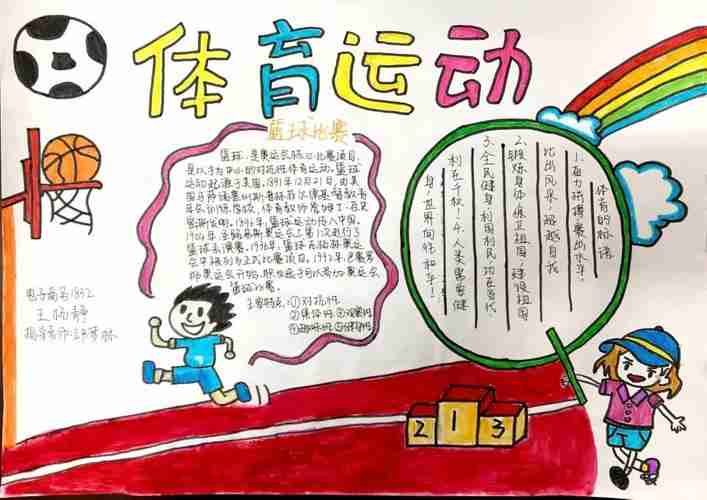 体育运动
篮球比赛
篮球,是奥运会核心比赛项目,
是以手为中心的对抗性体育运动。篮球
运动起源于美国。1891年12月21日,由美
国马萨诸塞州斯普林菲尔德基督教青
年会训练学校,体育教师詹姆士·奈史
密斯发明。1896年,篮球运动传入中国。
1904年,圣路易斯奥运会上第1次进行了
篮球表演赛。1936年,篮球在柏林奥运
会中被列为正式比赛项目。1992年,巴塞罗
那奥运会开始,职业选手可以参加奥运会
篮球比赛。
主要特点:①对抗性
②集体性③观赏性
④趣味性⑤健身性
体育的标语
1.奋力拼搏,赛出水平,
比出风采,超越自我
2.锻炼身体,保卫祖国,建设祖国
3.全民健身,利国利民,功在当代,
利在千秋!4.人类需要健
身,世界向往和平!
电子商务1892
王杨静
指导老师:
2 1 3